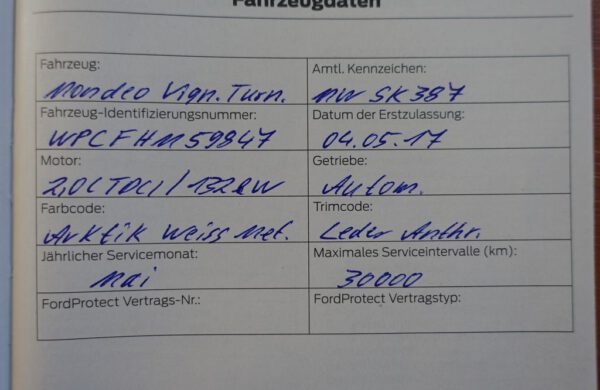 Fahrzeugdaten
Fahrzeug: Amtl. Kennzeichen:
Mondeo Vign. Turn. NW SK 387
Fahrzeug-Identifizierungsnummer: Datum der Erstzulassung:
WPCFHM59847 04.05.17
Motor: Getriebe:
2,0l TDCI / 132kW Autom.
Farbcode: Trimcode:
Arktik Weiss Met. Leder Anthr.
Jährlicher Servicemonat: Maximales Serviceintervalle (km):
Mai 30000
FordProtect Vertrags-Nr.: FordProtect Vertragstyp: